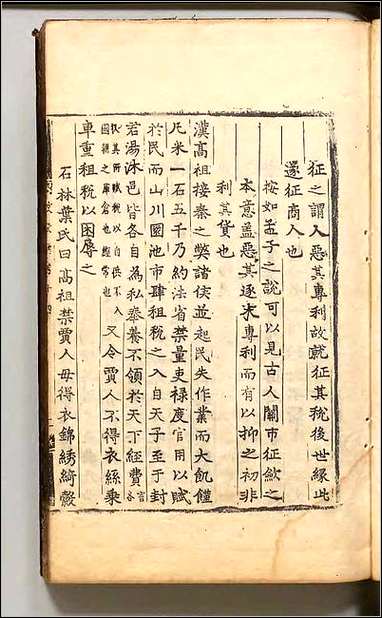 征之謂人惡其專利故就征其稅後世緣此
遂征商人也
按如孟子之說可以見古人關市征歛之
本意蓋惡其逐末專利而有以抑之初非
利其貨也
漢高祖接秦之獘諸侯並起民失作業而大飢饉
凡米一石五千乃約法省禁量吏祿度官用以賦
於民而山川園池市肆租稅之入自天子至于封
君湯沐邑皆各自為私奉養不領於天下經費言各
收其所賦稅以自供不入國朝之庫倉也經常也又令賈人不得衣絲乗
車重租稅以困辱之
石林葉氏曰高祖禁賈人毋得衣錦綉綺縠